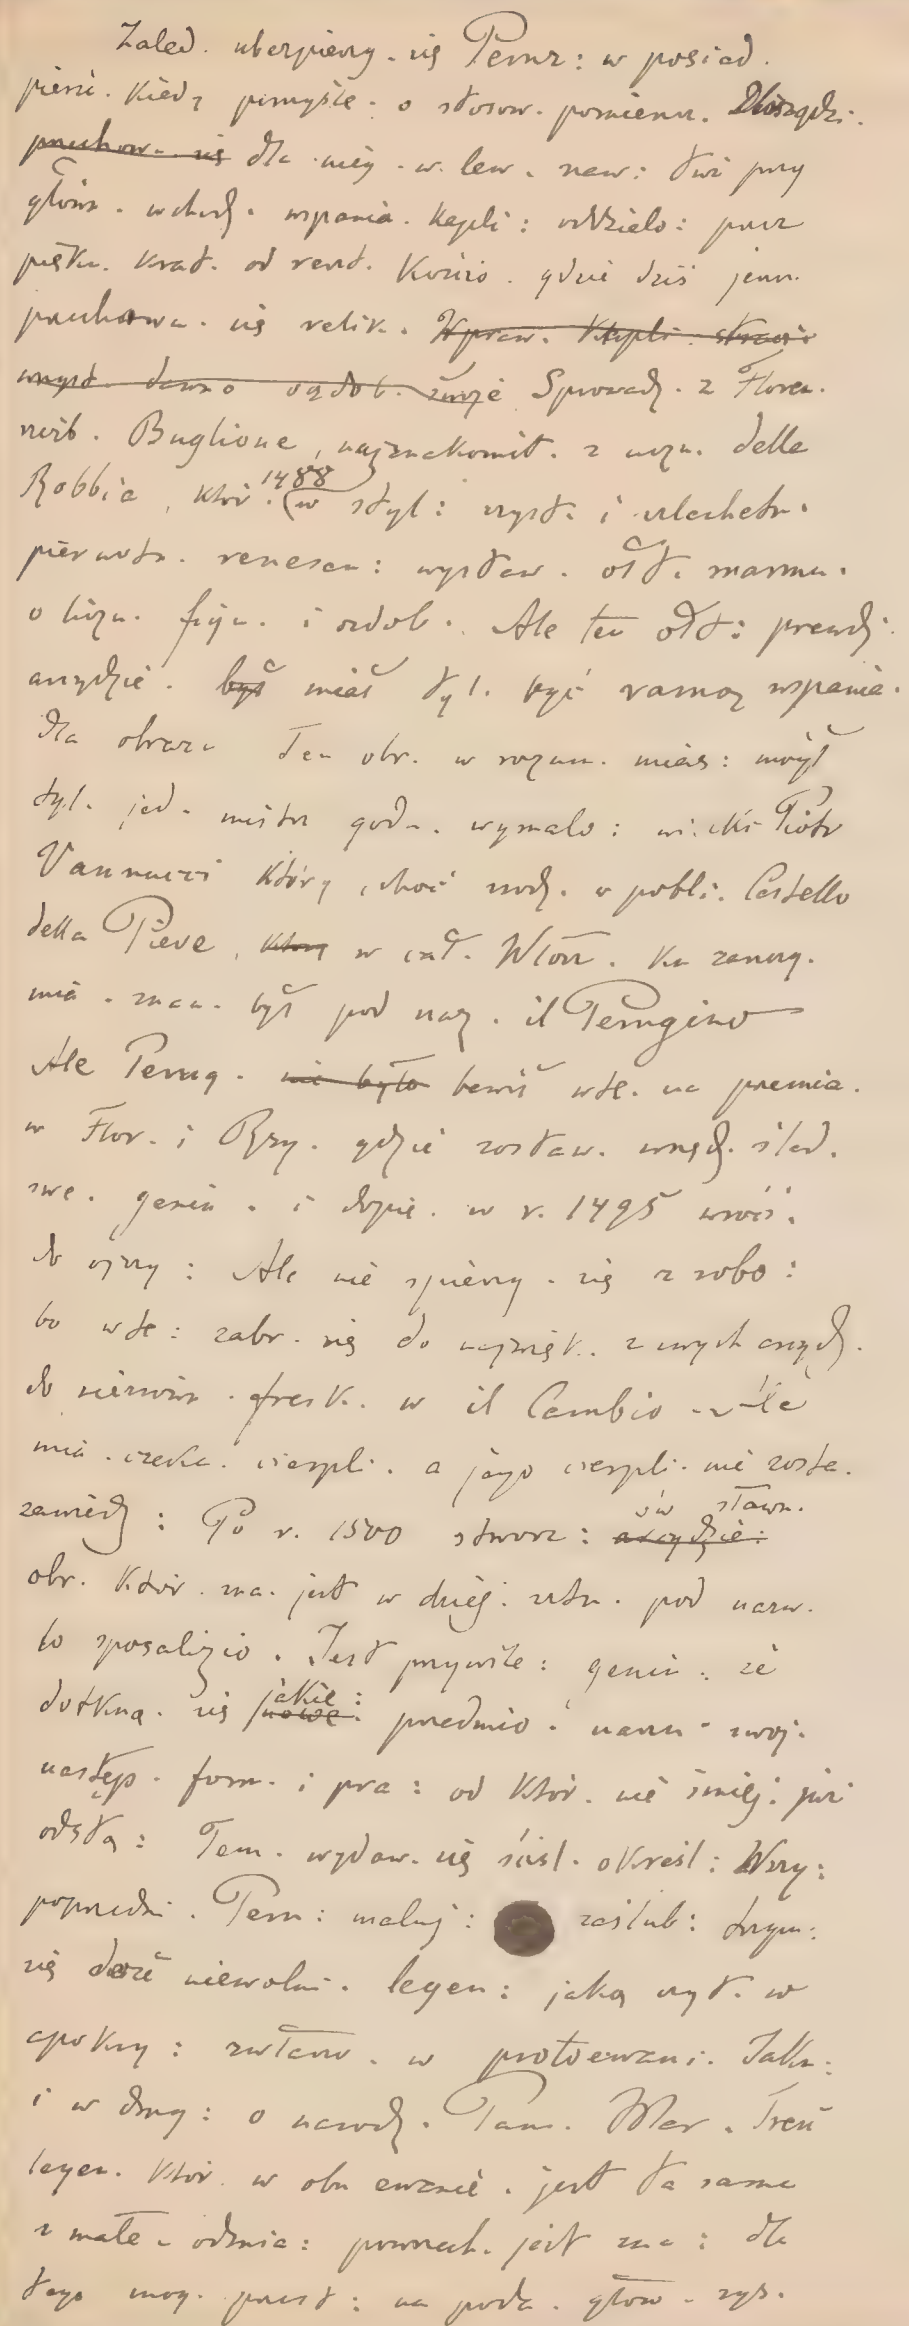 Zaled. ubezpieczy. się Peruz: w posiad.
pierś. kiedy pomyśle. o stosow. pomieszcz. Urządzi.
przechow. się dla niej. w. lew. naw: tuż przy
główn. wchodz. wspania. kapli: oddzielo: przez
piękn. krat. od reszt. Kościo. gdzie dziś jeszcz.
przechowu. się relik. Wpraw. kapli. straci
wszyst. dawno ozdob. swoje Sprowadz. z Floren.
rzeźb. Buglione, najznakomit. z uczn. della
Robbia, któr. 1488 (w styl: czyst. i szlachetn.
pierwotn. renesan: wystaw. ołt. marmu.
o liczn. figu. i ozdob. Ale ten ołt: prawdz.
arcydzie. był miał tyl. być ramą wspania.
dla obrazu Ten obr. w rozum. mias: mógł
tyl. jed. mistrz godn. wymalo: wielki Piotr
Vannucci który, choć urodz. w pobli. Castello
della Pieve, który w cał. Włosz. ku zaszczy.
mia. znan. był pod naz. il Perugino
Ale Perug. nie było bawił wte. na przemia.
w Flor. i Rzy. gdzie zostaw. wszędz. ślad.
swe. geniu. i dopie. w r. 1495 wróci.
do ojczy: Ale nie spieszy. się z robo:
bo wte: zabr. się do najwięk. z swych arcydz.
do fresk. w il Cambio
mia. czeka. cierpli. a jego cierpli. nie zosta.
zawiedz: Po r. 1500 stworz: arcydzie: ów sławn.
obr. któr. zna. jest w dziej: sztu. pod nazw.
lo sposalizio. Jest przywile: geniu. że
dotkną. się nowe: jakie: przedmio. narzu. swoj.
następ. form. i pra: od któr. nie śmiej: już
odstą: Tem. wydaw. się ściśl. określ: Wszy:
poprzedni. Peru: maluj: zaślub: trzym:
się dość niewolni. legen: jaką czyt. w
apokry: zwłaszcz. w protoewani. Jaku:
i w drug: o narodz. Pan. Mar. Treść
legen. któr. w obu ewanie. jest ta sama
z małe. odmia: powszech. jest zna: dla
tego mog. przest: na poda. główn. rys.